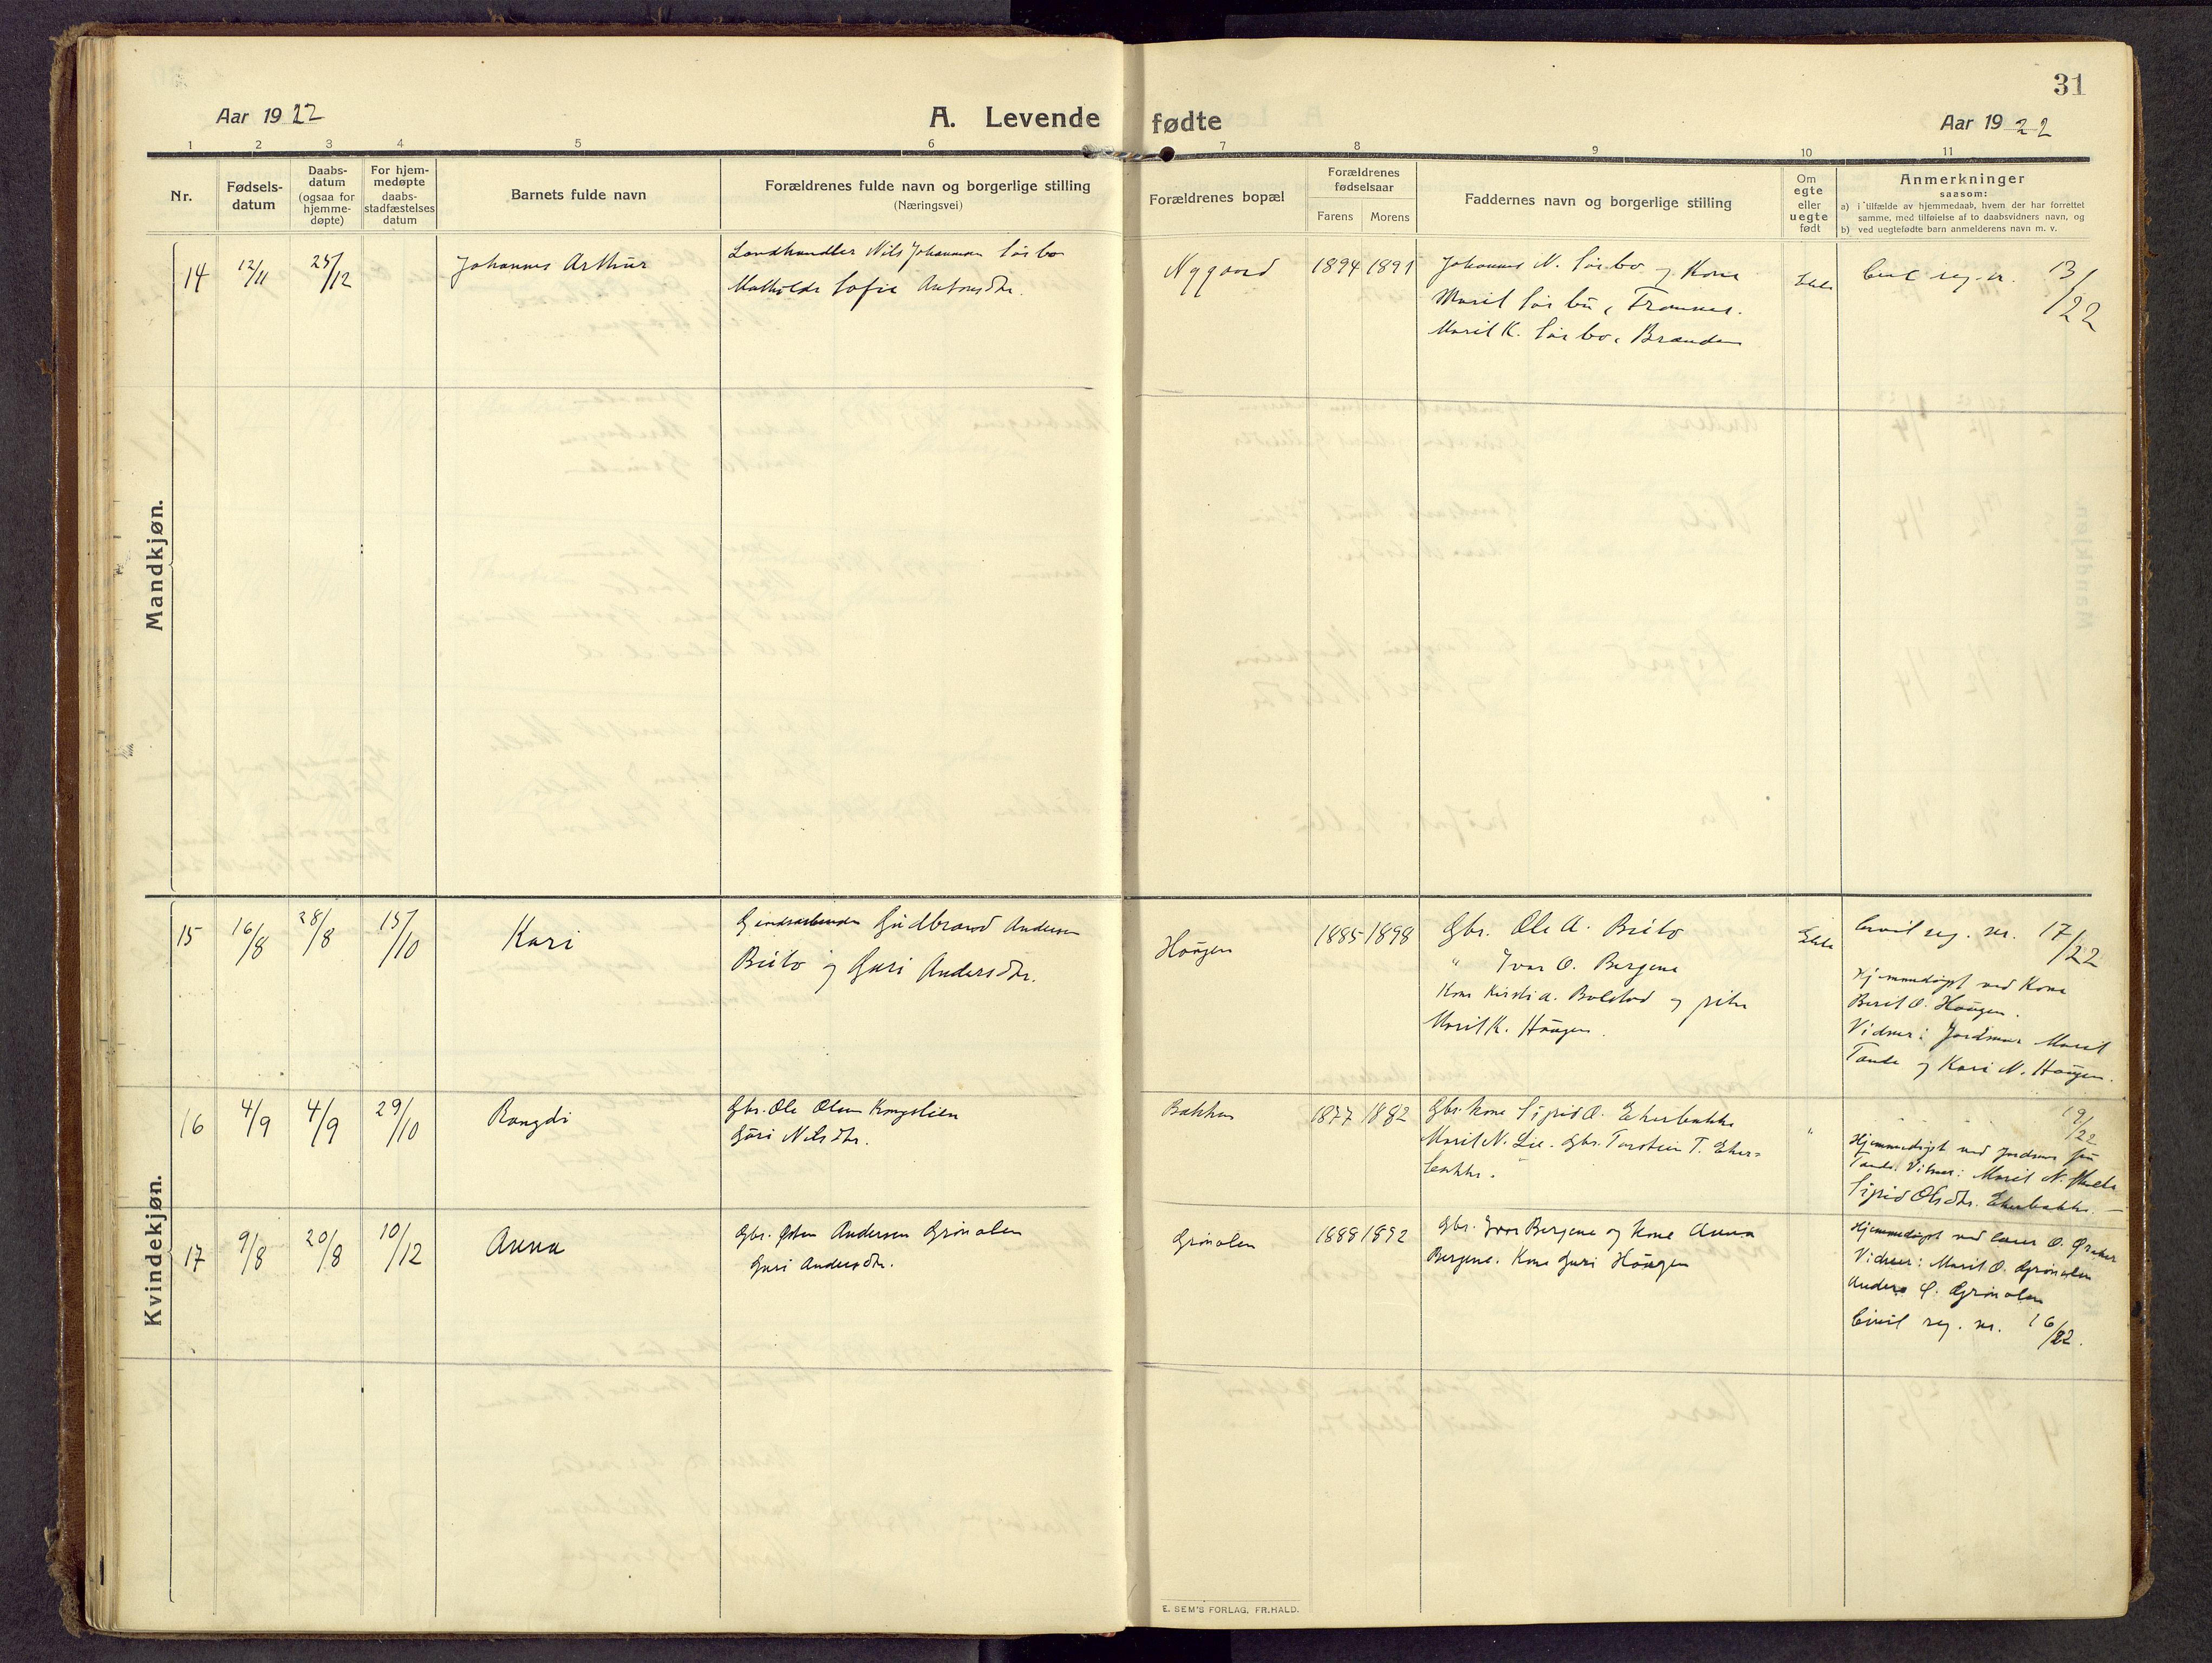 31
Aar 1922
A. Levende fødte
Aar 1922
1 2 3 4 5 6 7 8 9 10 11
Nr.
Fødsels-
datum
Daabs-
datum
(ogsaa for
hjemme-
døpte)
For hjem-
medøpte
daabs-
stadfæstelses
datum
Barnets fulde navn
Forældrenes fulde navn og borgerlige stilling
(Næringsvei)
Forældrenes bopæl
Forældrenes
fødselsaar
Farens Morens
Faddernes navn og borgerlige stilling
Om
egte
eller
uegte
født
Anmerkninger
saasom:
a) i tilfælde av hjemmedaab, hvem der har forrettet
samme, med tilføielse af to daabsvidners navn, og
b) ved uegtefødte barn anmelderens navn m. v.
Mandkjøn.
14 12/11 25/12
Johannes Arthur
Landhandler Nils Johannesen Sørbo
Mathilde Sofie Antonsdtr.
Nygaard
1894 1891
Johannes N. Sørbo og Kone
Marit Sørbu, Framnes.
Marit K. Sørbo, Branden
Ekte
Civil reg. nr. 13/22
Kvindekjøn.
15 16/8 28/8 15/10
Kari
Gaardsarbeider Gudbrand Andersen
Beito og Guri Andersdtr.
Haugen
1885 1898
Gbr. Ole A. Beito
" Ivar O. Bergene
Kone Kirsti A. Bolstad og pike
Marit K. Haugen.
Ekte
Civil reg. nr. 17/22
Hjemmedøpt ved Kone
Berit O. Haugen.
Vidner: Jordmor Marit
Tande og Kari N. Haugen.
16 4/9 4/9 29/10
Rangdi
Gbr. Ole Olsen Kongslien
Guri Nilsdtr.
Bakken
1877 1882
Gbr. kone Sigrid O. Ekerbakke
Marit N. Lie. Gbr. Torstein T. Eker-
bakke.
"
19/22
Hjemmedøpt ved jordmor fru
Tande. Vitner: Marit N.
Sigrid Olsdtr. Ekerbakke.
17 9/8 20/8 10/12
Anna
Gbr. Østen Andersen Grønolen
Guri Andersdtr.
Grønolen
1888 1892
Gbr. Ivar Bergene og Kone Anna
Bergene. Kone Guri Haugen
Hjemmedøpt ved lærer O.
Vidner: Marit O. Grønolen
Anders Ø. Grønolen
Civil reg. nr. 16/22.
E. SEM'S FORLAG, FR.HALD.